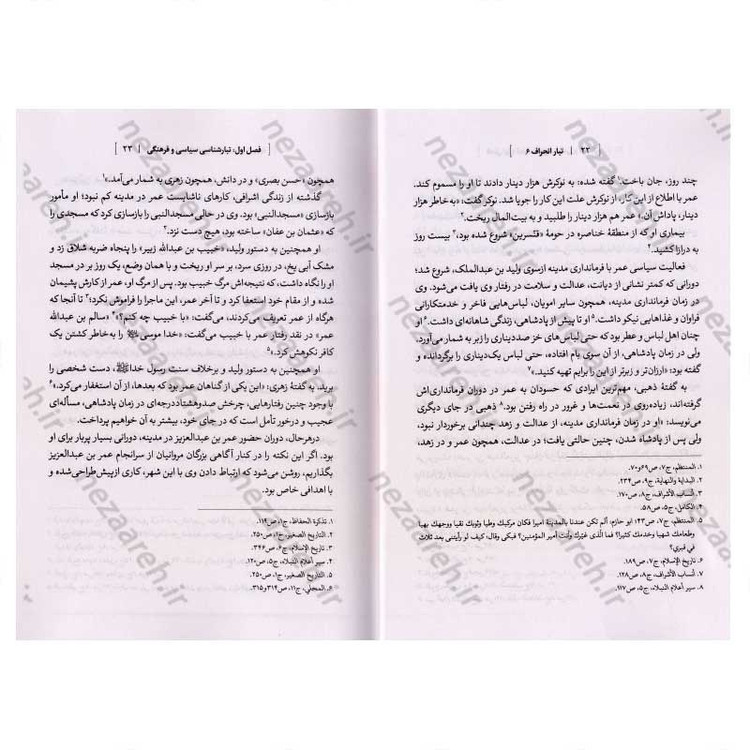 ۲۲ | تبار انحراف ۶ ]
چند روز، جان باخت.۱ گفته شده: به نوکرش هزار دینار دادند تا او را مسموم کند.
عمر با اطلاع از این کار، از نوکرش علت این کار را جویا شد. نوکر گفت: «به خاطر هزار
دینار، پاداش آن.» عمر هم هزار دینار را طلبید و به بیت‌المال ریخت.۲
بیماری او که از منطقهٔ خناصره در حومهٔ «قنّسرین» شروع شده بود،۳ بیست روز
به درازا کشید.۴
فعالیت سیاسی عمر با فرمانداری مدینه ازسوی ولید بن عبدالملک، شروع شد؛
دورانی که کمتر نشانی از دیانت، عدالت و سلامت در رفتار وی یافت می‌شود. وی
در زمان فرمانداری مدینه، همچون سایر امویان، لباس‌هایی فاخر و خدمتکارانی
فراوان و غذاهایی نیکو داشت.۵ او تا پیش از پادشاهی، زندگی شاهانه‌ای داشت.۶ او
چنان اهل لباس و عطر بود که حتی لباس‌های خز صددیناری را زبر به شمار می‌آورد.
ولی در زمان پادشاهی، از آن سوی بام افتاده، حتی لباس یک‌دیناری را برگردانده و
می‌گفت: «ارزان‌تر و زبرتر از این را برایم تهیه کنید.»۷
به گفتهٔ ذهبی، مهم‌ترین ایرادی که حسودان به عمر در دوران فرمانداری‌اش
گرفتند، زیاده‌روی در نعمت‌ها و غرور در راه رفتن بود.۸ ذهبی در جای دیگری
می‌نویسد: «او در زمان فرمانداری مدینه، از عدالت و زهد چندانی برخوردار نبود،
ولی پس از پادشاه شدن، چنین حالتی یافت؛ در عدالت، همچون عمر و در زهد،
۱. المنتظم، ج۷، ص۶۹و۷۰.
۲. البدایة والنهایة، ج۹، ص۲۳۴.
۳. أنساب الأشراف، ج۸، ص۱۷۰.
۴. الکامل، ج۵، ص۵۸.
۵. المنتظم، ج۷، ص۴۳؛ ابو حازم، ألم تکن عندنا بالمدینة أمیرا فکان مرکبک وطیا وثوبک نقیا ووجهک بهیا
وطعامک شهیا وخدمک کثیرا؟ فما الّذی غیّرک وأنت أمیر المؤمنین؟ فبکی وقال، کیف لو رأیتنی بعد ثلاث
فی قبری؟
۶. تاریخ الإسلام، ج۷، ص۱۸۹.
۷. أنساب الأشراف، ج۸، ص۱۲۸.
۸. سیر أعلام النبلاء، ج۵، ص۱۱۷.
فصل اول: تبارشناسی سیاسی و فرهنگی | ۲۳ ]
همچون «حسن بصری» و در دانش، همچون زهری به شمار می‌آمد.»۱
گذشته از زندگی اشرافی، کارهای ناشایست عمر در مدینه کم نبود؛ او مأمور
بازسازی «مسجدالنبی» بود. وی در حالی مسجدالنبی را بازسازی کرد که مسجدی را
که «عثمان بن عفان» ساخته بود، هیچ دست نزد.۲
او همچنین به دستور ولید، «خبیب بن عبدالله زبیر» را پنجاه ضربه شلاق زد و
مشک آبی یخ، در روزی سرد، بر سر او ریخت و با همان وضع، یک روز بر در مسجد
او را نگاه داشت، که نتیجه‌اش مرگ خبیب بود. پس از مرگ او، عمر از کارش پشیمان
شده و از مقام خود استعفا کرد و تا آخر عمر، این ماجرا را فراموش نکرد؛۳ تا آنجا که
هرگاه از عمر تعریف می‌کردند، می‌گفت: «با خبیب چه کنم؟»۴ «سالم بن عبدالله
عمر» در نقد رفتار عمر با خبیب می‌گفت: «خدا موسی را به‌خاطر کشتن یک
کافر نکوهش کرد.»۵
او همچنین به دستور ولید و برخلاف سنت رسول خداﷺ، دست شخصی را
برید. به گفتهٔ زهری: «این یکی از گناهان عمر بود که بعدها، از آن استغفار می‌کرد.»۶
با وجود چنین رفتارهایی، چرخش صدوهشتاددرجه‌ای در زمان پادشاهی، مسأله‌ای
عجیب و درخور تأمل است که در جای خود، بیشتر به آن خواهیم پرداخت.
درهرحال، دوران حضور عمر بن عبدالعزیز در مدینه، دورانی بسیار پربار برای او
بود. اگر این نکته را در کنار آگاهی بزرگان مروانیان از سرانجام عمر بن عبدالعزیز
بگذاریم، روشن می‌شود که ارتباط دادن وی با این شهر، کاری ازپیش‌طراحی‌شده و
با اهدافی خاص بود.
۱. تذکرة الحفاظ، ج۱، ص۱۱۹.
۲. التاریخ الصغیر، ج۱، ص۲۵۰.
۳. تاریخ الإسلام، ج۶، ص۳۴۶.
۴. سیر أعلام النبلاء، ج۵، ص۱۲۰.
۵. التاریخ الصغیر، ج۱، ص۲۵۰.
۶. المحلی، ج۱۱، ص۳۱۴و۳۱۵.
nezaareh.ir